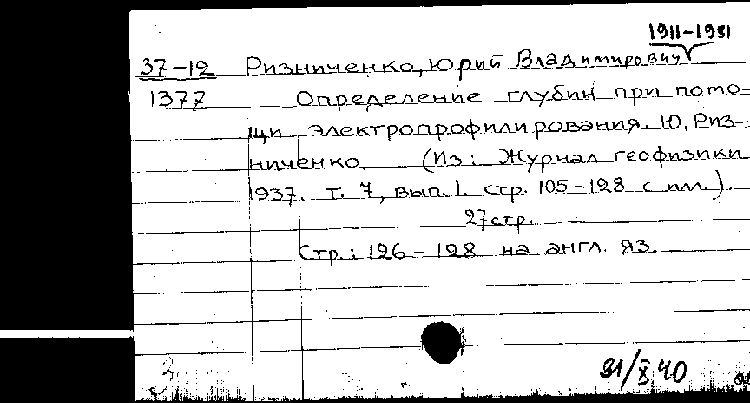 1911-1981
37-12 Ризниченко, Юрий Владимирович
1377 Определение глубин при помо-
щи электропрофилирования. Ю. Риз-
ниченко (Из: Журнал геофизики
1937. т. 7, вып. 1. стр. 105-128 с илл.).
27 стр.
Стр.: 126-128 на англ. яз.
3
21/X 40